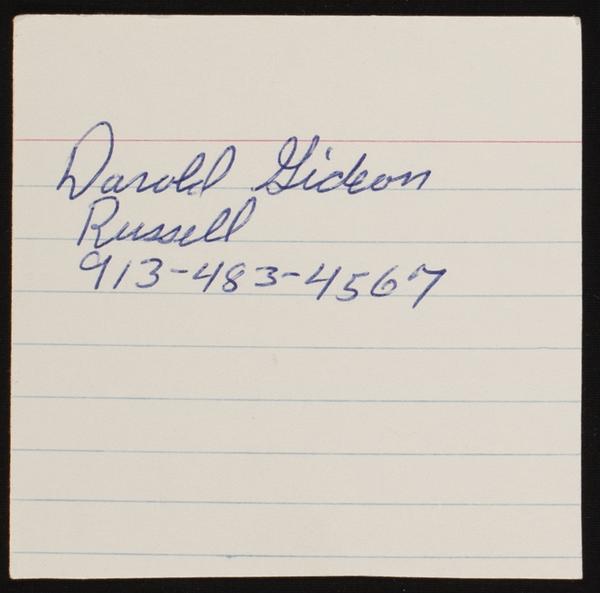 Darold Gideon
Russell
913-483-4567